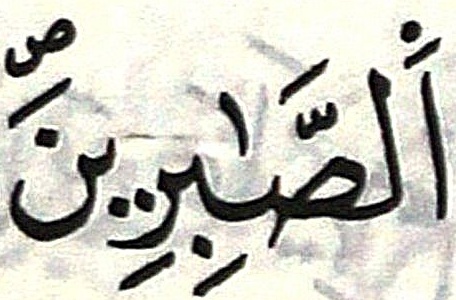 اَ۬لصَّٰبِرِينَۖ